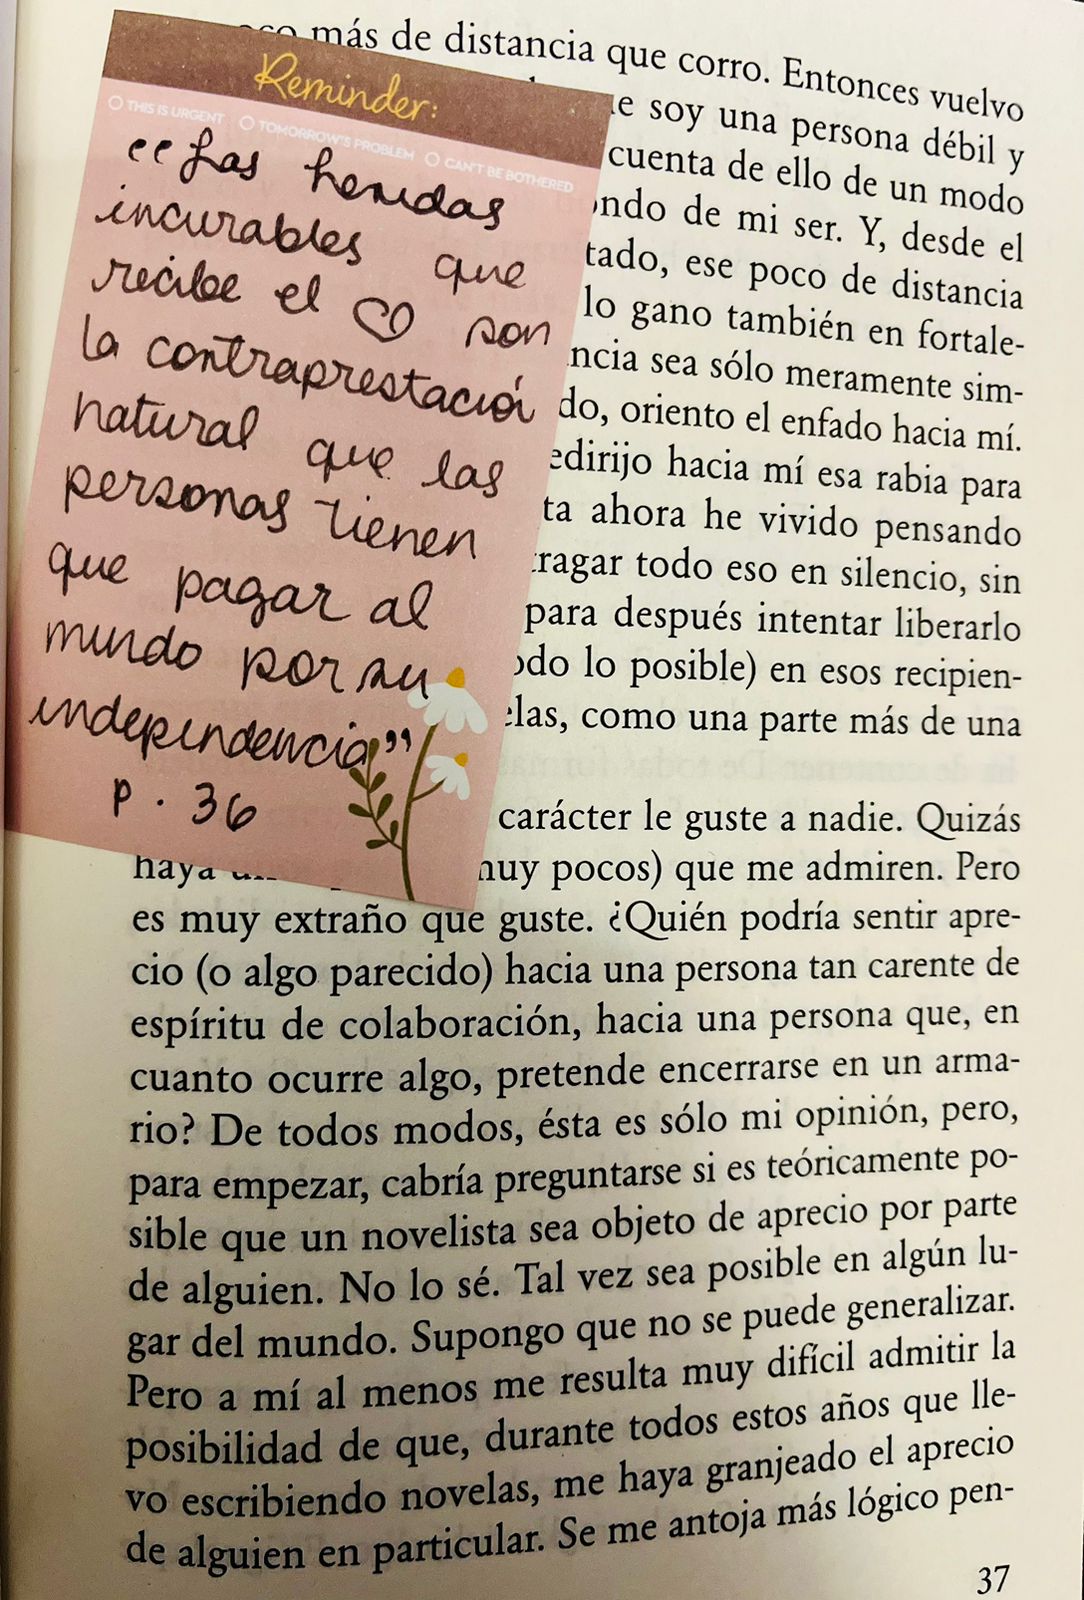 Reminder:
THIS IS URGENT TOMORROW'S PROBLEM CAN'T BE BOTHERED
"Las heridas
incurables que
recibe el ♡ son
la contraprestación
natural que las
personas tienen
que pagar al
mundo por su
independencia"
p. 36
más de distancia que corro. Entonces vuelvo
soy una persona débil y
cuenta de ello de un modo
de mi ser. Y, desde el
ese poco de distancia
lo gano también en fortale-
sea sólo meramente sim-
oriento el enfado hacia mí.
hacia mí esa rabia para
ahora he vivido pensando
todo eso en silencio, sin
para después intentar liberarlo
lo posible) en esos recipien-
como una parte más de una
carácter le guste a nadie. Quizás
haya pocos) que me admiren. Pero
es muy extraño que guste. ¿Quién podría sentir apre-
cio (o algo parecido) hacia una persona tan carente de
espíritu de colaboración, hacia una persona que, en
cuanto ocurre algo, pretende encerrarse en un arma-
rio? De todos modos, ésta es sólo mi opinión, pero,
para empezar, cabría preguntarse si es teóricamente po-
sible que un novelista sea objeto de aprecio por parte
de alguien. No lo sé. Tal vez sea posible en algún lu-
gar del mundo. Supongo que no se puede generalizar.
Pero a mí al menos me resulta muy difícil admitir la
posibilidad de que, durante todos estos años que lle-
vo escribiendo novelas, me haya granjeado el aprecio
de alguien en particular. Se me antoja más lógico pen-
37